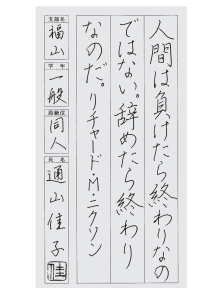 人間は負けたら終わりなの
ではない。辞めたら終わり
なのだ。リチャード・M・ニクソン
支部名
福山
学年
一般
段級位
同人
氏名
通山佳子
佳